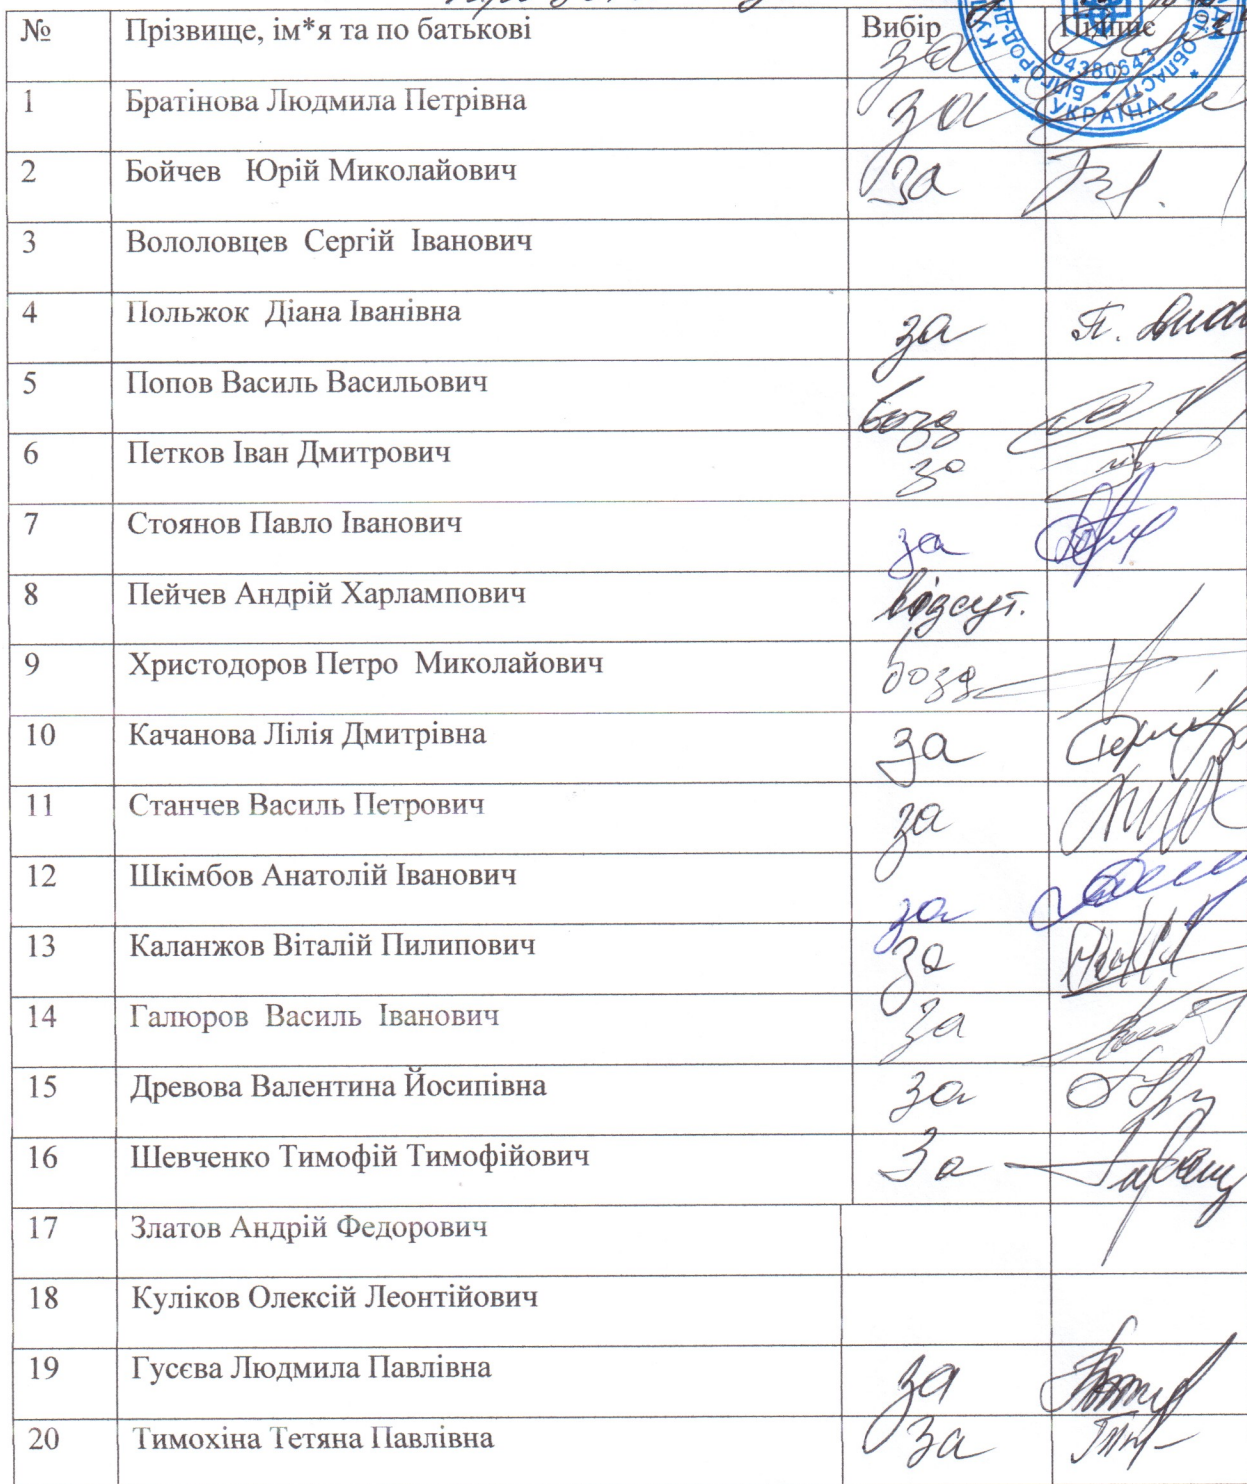 № Прізвище, ім*я та по батькові Вибір Підпис
за
04380643
УКРАЇНА
1 Братінова Людмила Петрівна за
2 Бойчев Юрій Миколайович за
3 Вололовцев Сергій Іванович
4 Польжок Діана Іванівна за
5 Попов Василь Васильович
6 Петков Іван Дмитрович за
7 Стоянов Павло Іванович за
8 Пейчев Андрій Харлампович відсут.
9 Христодоров Петро Миколайович
10 Качанова Лілія Дмитрівна за
11 Станчев Василь Петрович за
12 Шкімбов Анатолій Іванович за
13 Каланжов Віталій Пилипович за
14 Галюров Василь Іванович за
15 Древова Валентина Йосипівна за
16 Шевченко Тимофій Тимофійович За
17 Златов Андрій Федорович
18 Куліков Олексій Леонтійович
19 Гусєва Людмила Павлівна за
20 Тимохіна Тетяна Павлівна за